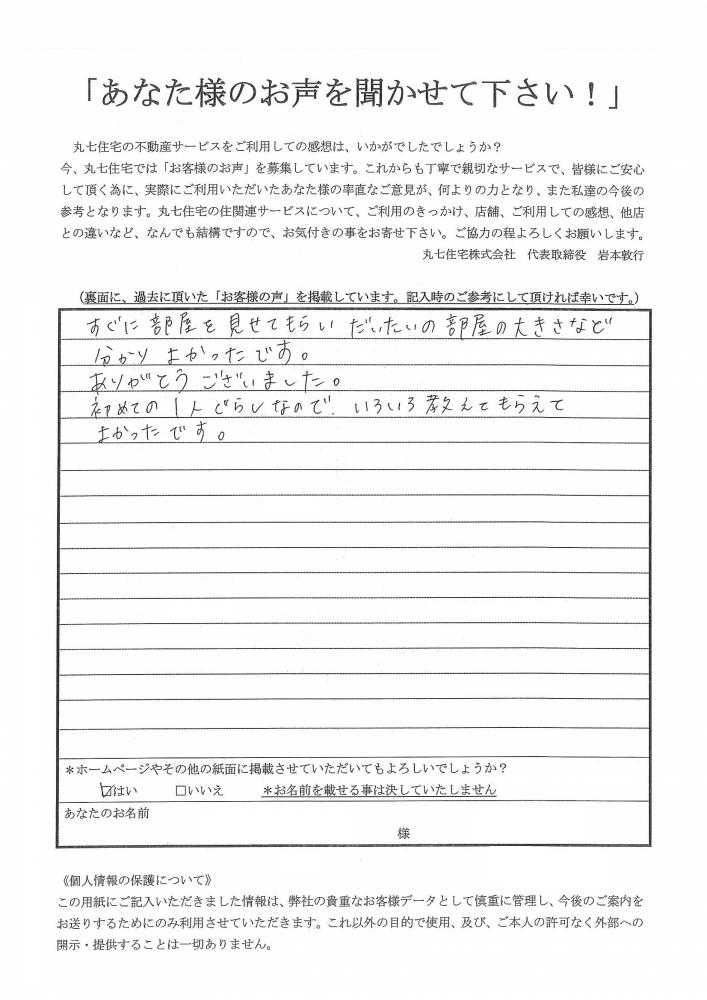 「あなた様のお声を聞かせて下さい！」
丸七住宅の不動産サービスをご利用しての感想は、いかがでしたでしょうか？
今、丸七住宅では「お客様のお声」を募集しています。これからも丁寧で親切なサービスで、皆様にご安心
して頂く為に、実際にご利用いただいたあなた様の率直なご意見が、何よりの力となり、また私達の今後の
参考となります。丸七住宅の住関連サービスについて、ご利用のきっかけ、店舗、ご利用しての感想、他店
との違いなど、なんでも結構ですので、お気付きの事をお寄せ下さい。ご協力の程よろしくお願いします。
丸七住宅株式会社　代表取締役　岩本敦行
（裏面に、過去に頂いた「お客様の声」を掲載しています。記入時のご参考にして頂ければ幸いです。）
すぐに部屋を見せてもらい だいたいの部屋の大きさなど
分かり よかったです。
ありがとう ございました。
初めての1人ぐらしなので、いろいろ教えてもらえて
よかったです。
＊ホームページやその他の紙面に掲載させていただいてもよろしいでしょうか？
☑はい　□いいえ　＊お名前を載せる事は決していたしません
あなたのお名前
様
《個人情報の保護について》
この用紙にご記入いただきました情報は、弊社の貴重なお客様データとして慎重に管理し、今後のご案内を
お送りするためにのみ利用させていただきます。これ以外の目的で使用、及び、ご本人の許可なく外部への
開示・提供することは一切ありません。